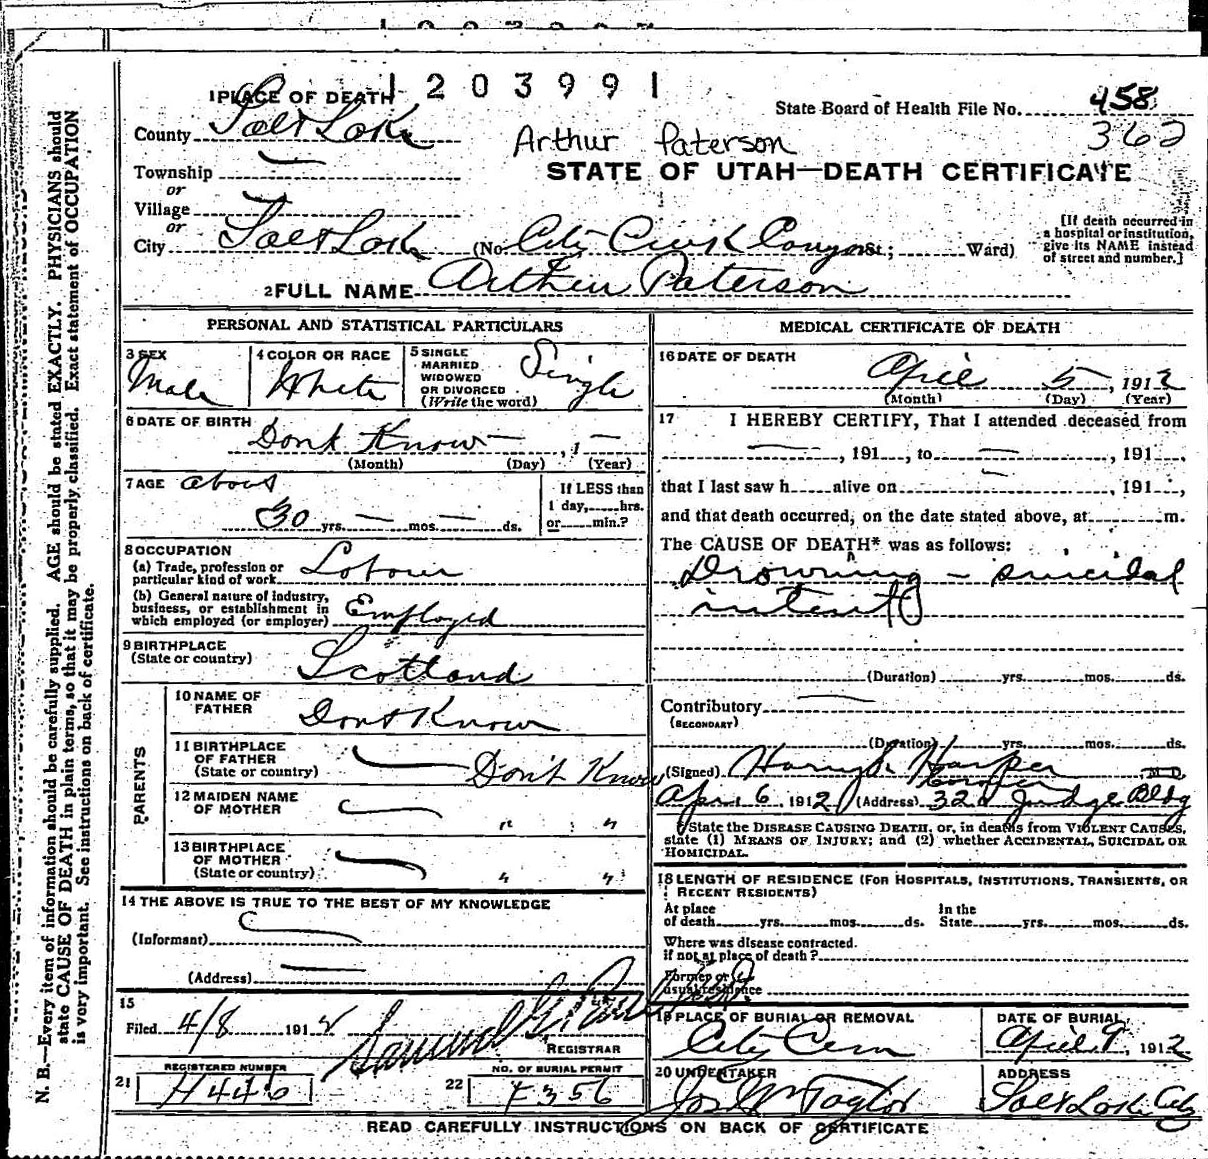 1203991
1 PLACE OF DEATH
State Board of Health File No. 458
362
County Salt Lake
Arthur Paterson
STATE OF UTAH—DEATH CERTIFICATE
Township
or
Village
or
City Salt Lake (No. City Creek Canyon St.; Ward)
[If death occurred in a hospital or institution, give its NAME instead of street and number.]
2 FULL NAME Arthur Paterson
PERSONAL AND STATISTICAL PARTICULARS
3 SEX
Male
4 COLOR OR RACE
White
5 SINGLE
MARRIED
WIDOWED
OR DIVORCED
(Write the word)
Single
6 DATE OF BIRTH
Dont Know — , 1 —
(Month) (Day) (Year)
7 AGE about
30 yrs. — mos. — ds.
If LESS than
1 day, hrs.
or min.?
8 OCCUPATION
(a) Trade, profession or
particular kind of work Labour
(b) General nature of industry,
business, or establishment in
which employed (or employer) Employed
9 BIRTHPLACE
(State or country) Scotland
PARENTS
10 NAME OF
FATHER Dont Know
11 BIRTHPLACE
OF FATHER
(State or country) Don't Know
12 MAIDEN NAME
OF MOTHER " "
13 BIRTHPLACE
OF MOTHER
(State or country) " "
14 THE ABOVE IS TRUE TO THE BEST OF MY KNOWLEDGE
(Informant)
(Address)
15
Filed 4/8 1912
REGISTRAR
21 REGISTERED NUMBER
H446
22 NO. OF BURIAL PERMIT
F356
MEDICAL CERTIFICATE OF DEATH
16 DATE OF DEATH
April 5, 1912
(Month) (Day) (Year)
17 I HEREBY CERTIFY, That I attended deceased from
— , 191 , to — , 191 ,
that I last saw h alive on — , 191 ,
and that death occurred, on the date stated above, at m.
The CAUSE OF DEATH* was as follows:
Drowning – suicidal
intent
(Duration) yrs. mos. ds.
Contributory
(SECONDARY)
(Duration) yrs. mos. ds.
(Signed) Harry S. Harper M D.
Coroner
Apr 6 1912 (Address) 322 Judge Bldg
*State the DISEASE CAUSING DEATH, or, in deaths from VIOLENT CAUSES,
state (1) MEANS OF INJURY; and (2) whether ACCIDENTAL, SUICIDAL OR
HOMICIDAL.
18 LENGTH OF RESIDENCE (FOR HOSPITALS, INSTITUTIONS, TRANSIENTS, OR
RECENT RESIDENTS)
At place
of death yrs. mos. ds.
In the
State yrs. mos. ds.
Where was disease contracted.
if not at place of death?
Former or
usual residence
19 PLACE OF BURIAL OR REMOVAL
City Cem
DATE OF BURIAL
April 9, 1912
20 UNDERTAKER
Jos Wm Taylor
ADDRESS
Salt Lake City
READ CAREFULLY INSTRUCTIONS ON BACK OF CERTIFICATE
N. B.—Every item of information should be carefully supplied. AGE should be stated EXACTLY. PHYSICIANS should
state CAUSE OF DEATH in plain terms, so that it may be properly classified. Exact statement of OCCUPATION
is very important. See instructions on back of certificate.